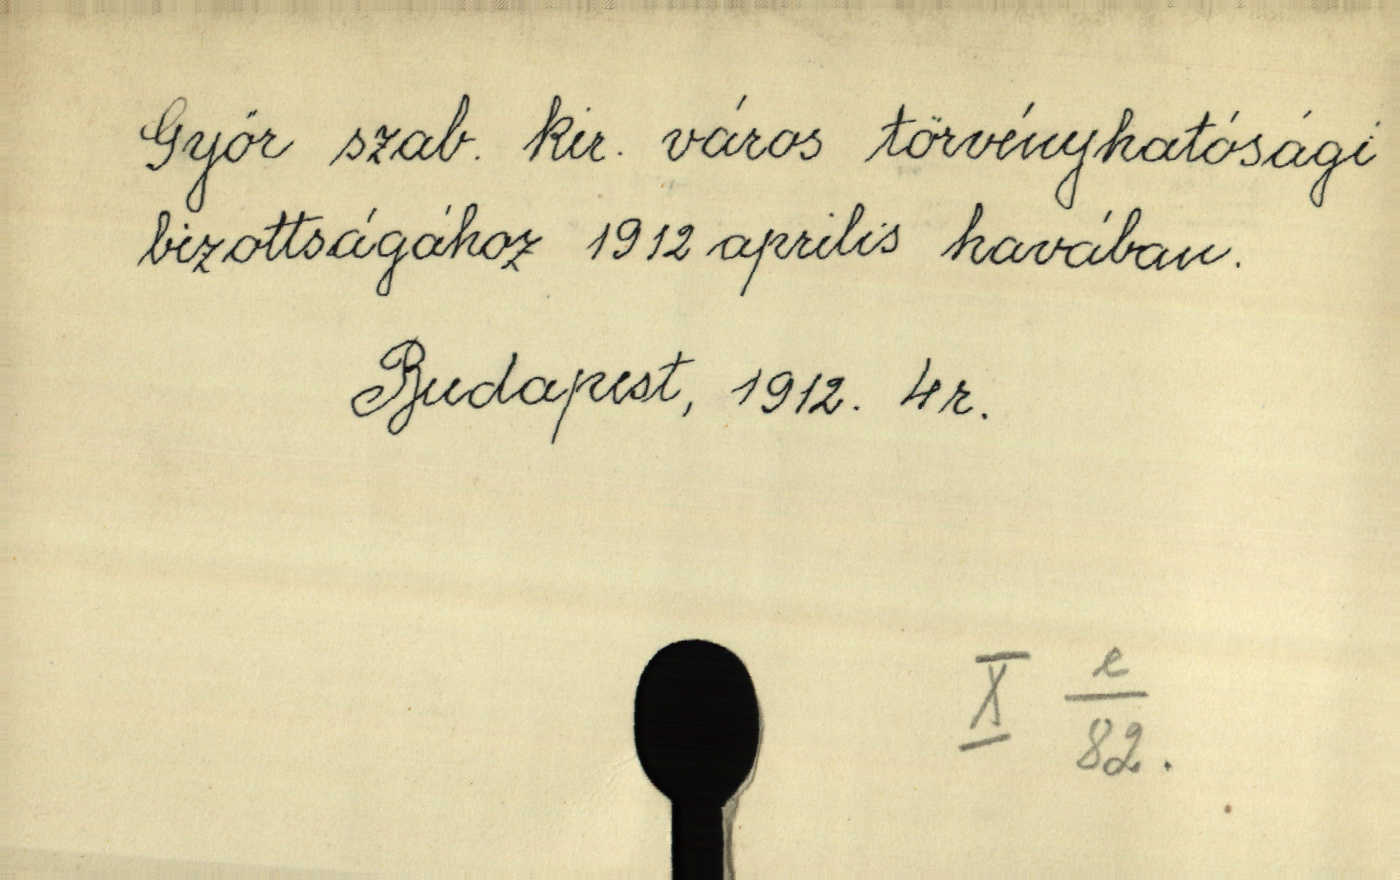 Győr szab. kir. város törvényhatósági
bizottságához 1912 aprilis havában.
Budapest, 1912. 4r.
X e/82.